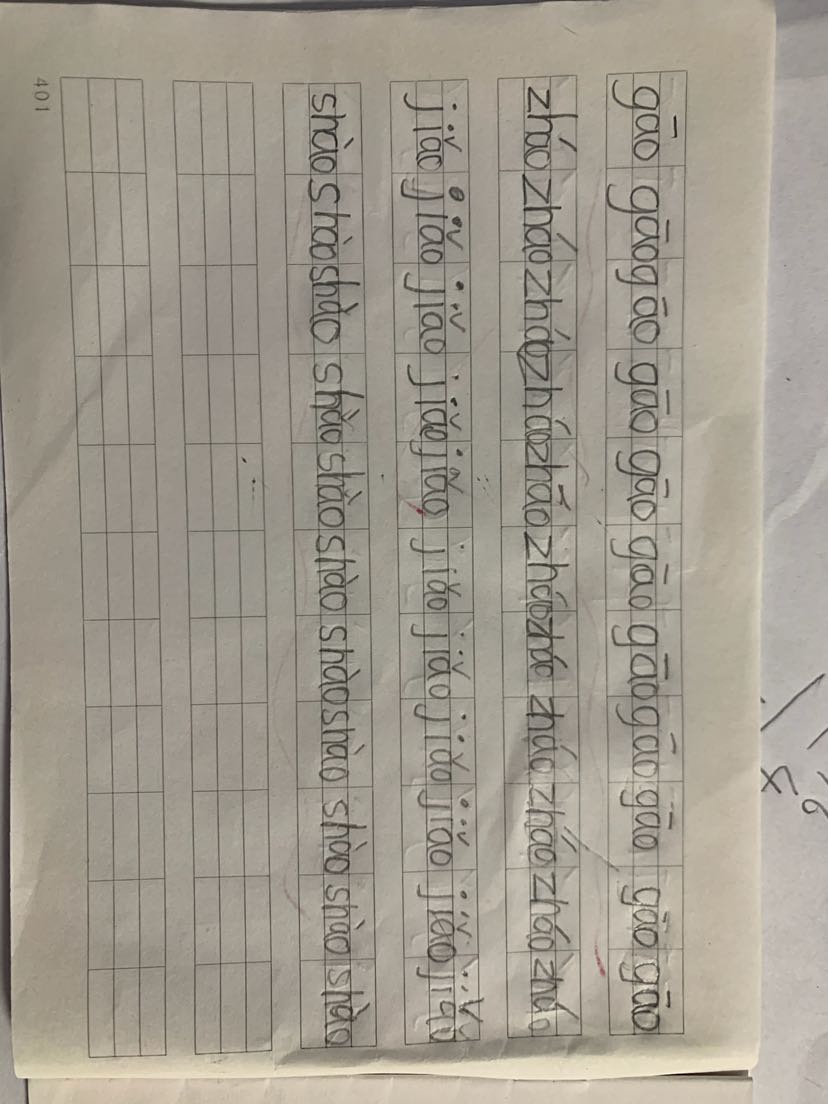 gāo gāo gāo gāo gāo gāo gāo gāo gāo gāo gāo
zháo zháo zháo zháo zháo zháo zháo zháo zháo zháo zháo
jiǎo jiǎo jiǎo jiǎo jiǎo jiǎo jiǎo jiǎo jiǎo jiǎo jiǎo
shào shào shào shào shào shào shào shào shào shào shào
401